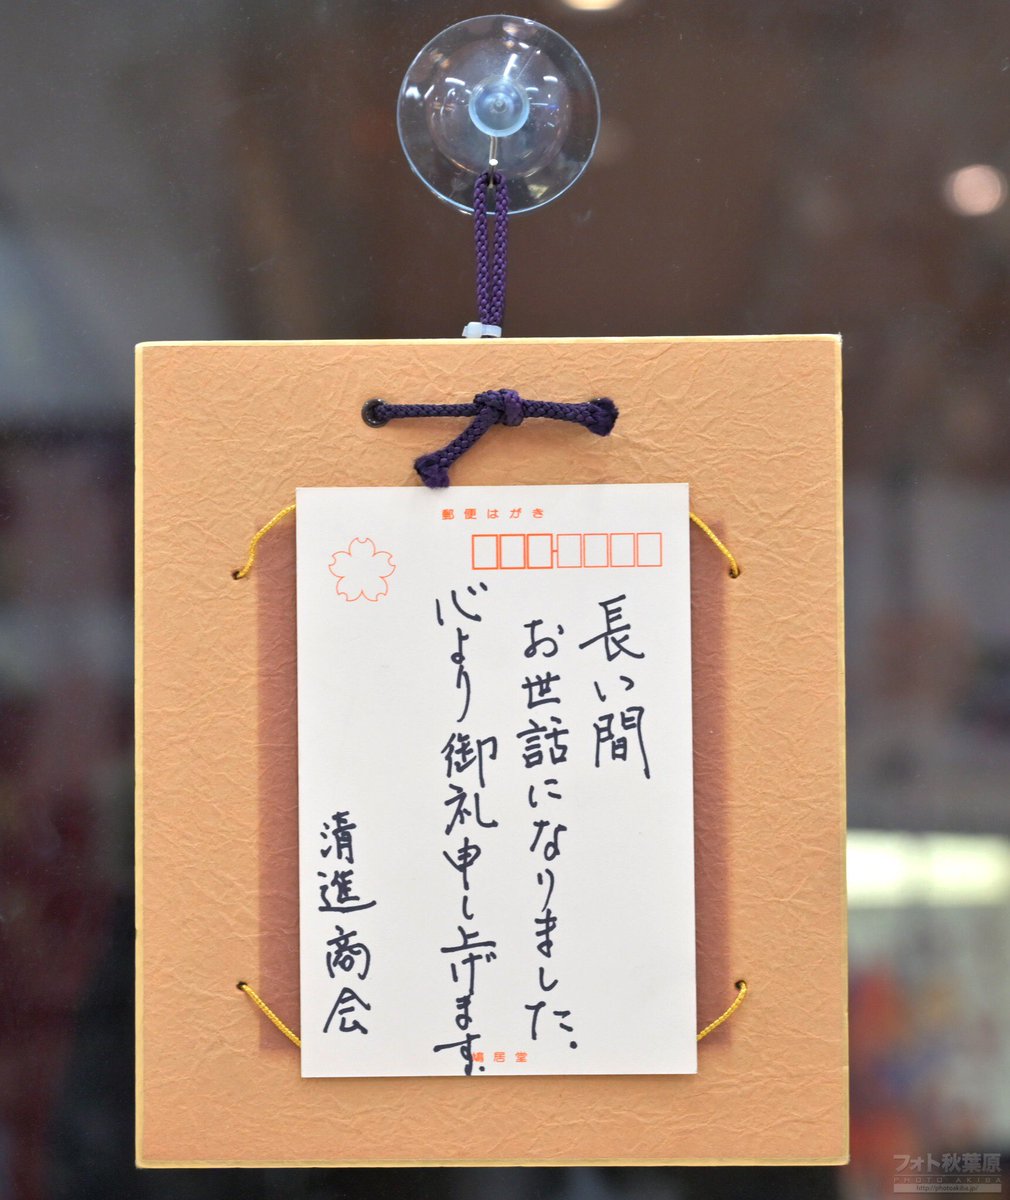 郵便はがき
長い間
お世話になりました.
心より御礼申し上げます.
清進商会
鳩居堂
フォト秋葉原
PHOTO AKIBA
http://photoakiba.jp/